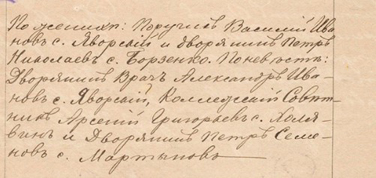 По женихѣ: Поручикъ Василій Ива-
новъ с. Яворскій и дворянинъ Петръ
Николаевъ с. Борзенко. По невѣстѣ:
Дворянинъ Врачъ Александръ Ива-
новъ с. Яворскій, Коллежскій Совѣт-
никъ Арсеній Григорьевъ с. Холя-
винъ и Дворянинъ Петръ Семе-
новъ с. Мартыновъ